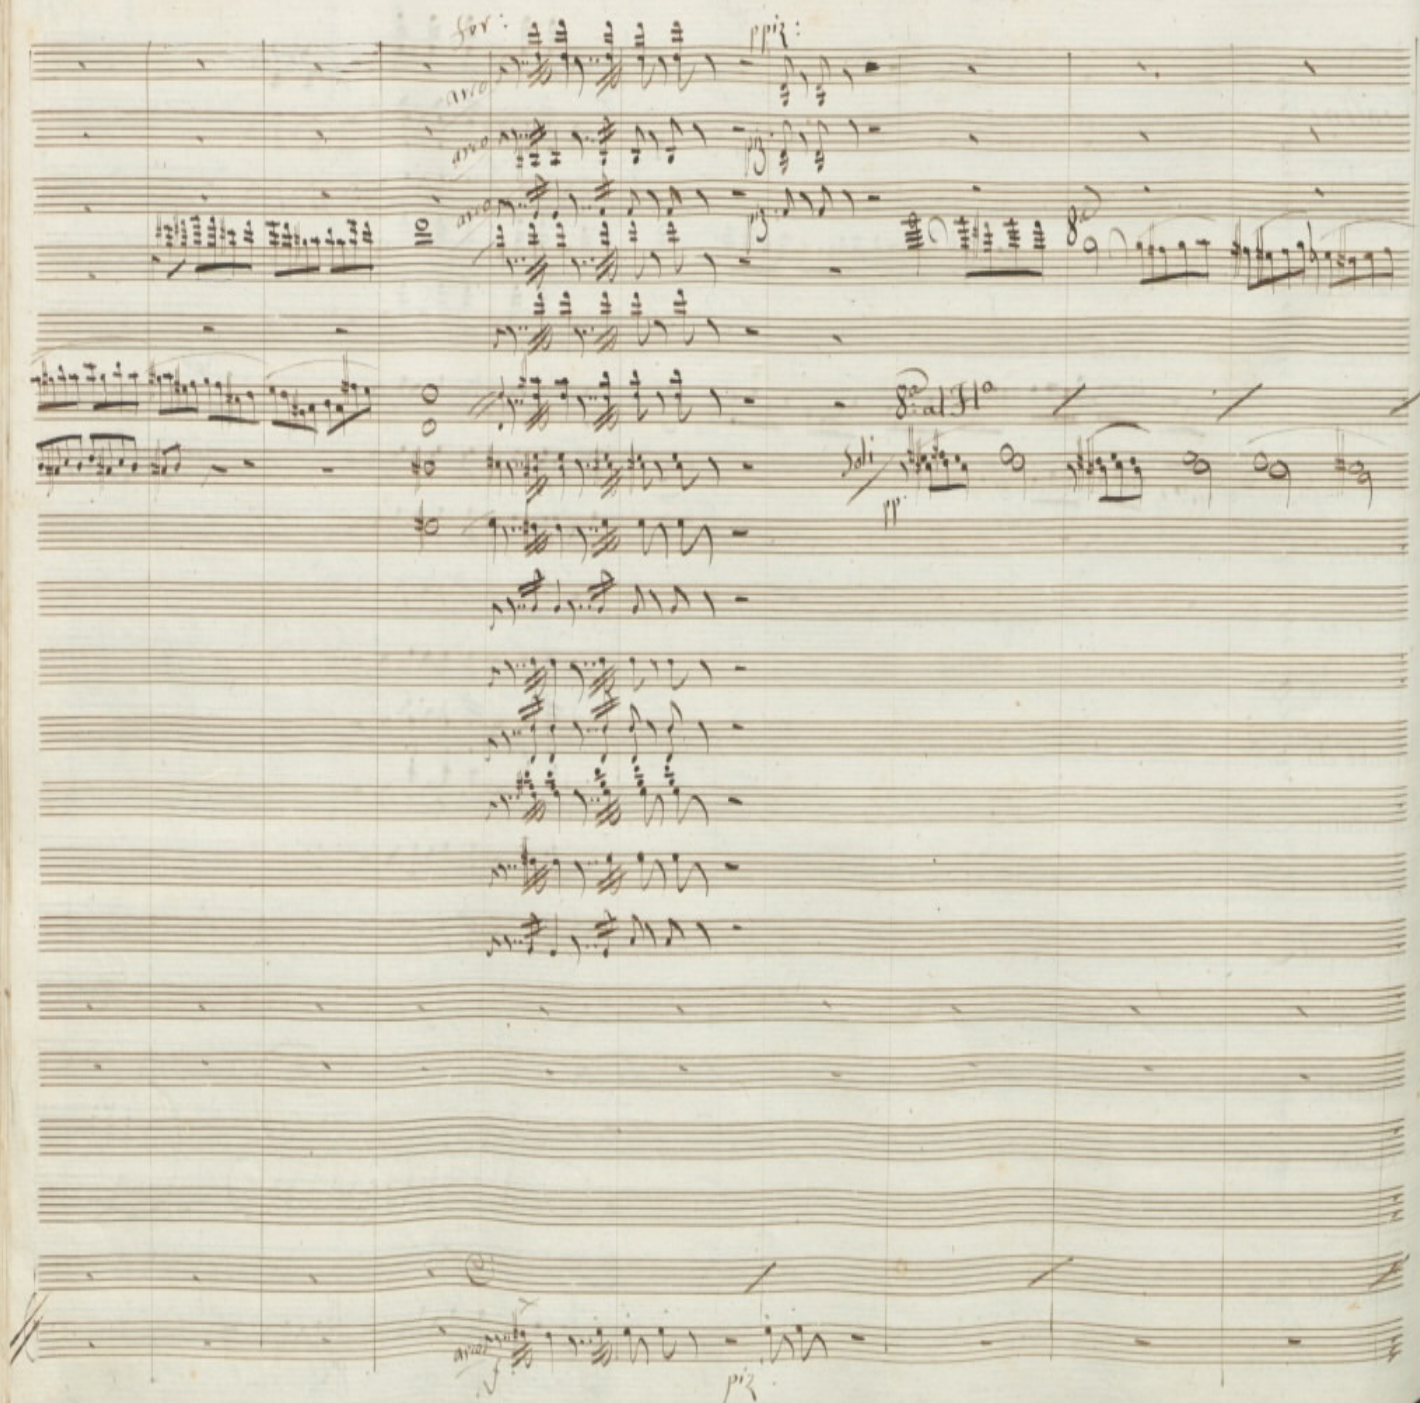 for:
ppiz:
arco
arco
pz
arco
pz
8a
8a al Fl°
Soli
pp
arco
f
piz